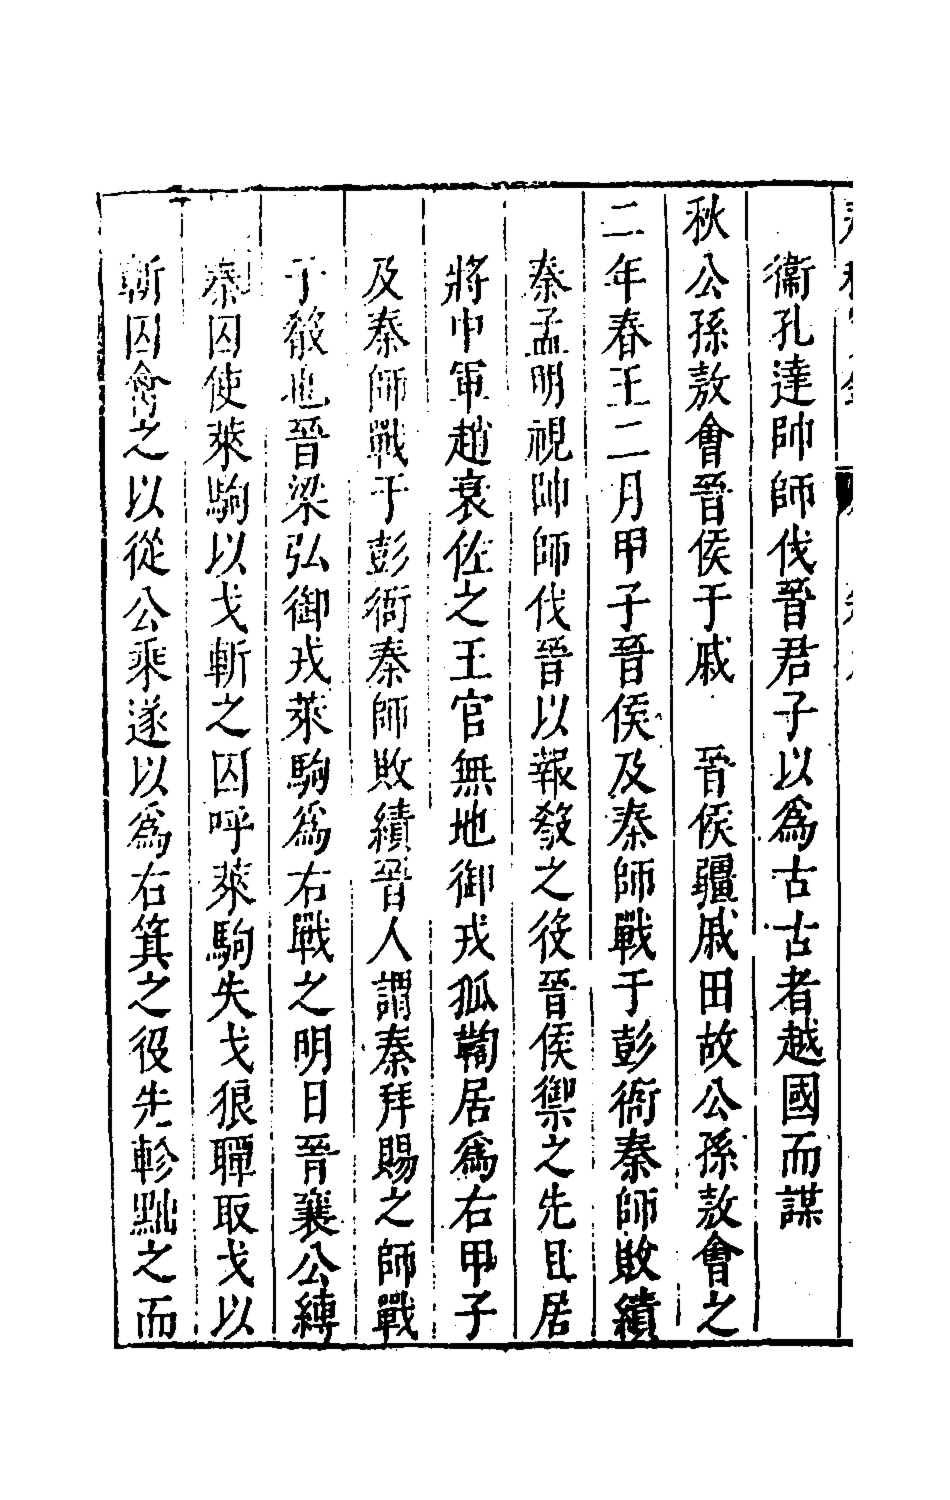 衞孔達帥師伐晉君子以爲古古者越國而謀
秋公孫敖會晉侯于戚　晉侯疆戚田故公孫敖會之
二年春王二月甲子晉侯及秦師戰于彭衙秦師敗績
秦孟明視帥師伐晉以報殽之役晉侯禦之先且居
將中軍趙衰佐之王官無地御戎狐鞫居爲右甲子
及秦師戰于彭衙秦師敗績晉人謂秦拜賜之師戰
于殽也晉梁弘御戎萊駒爲右戰之明日晉襄公縛
秦囚使萊駒以戈斬之囚呼萊駒失戈狼瞫取戈以
斬囚禽之以從公乘遂以爲右箕之役先軫黜之而